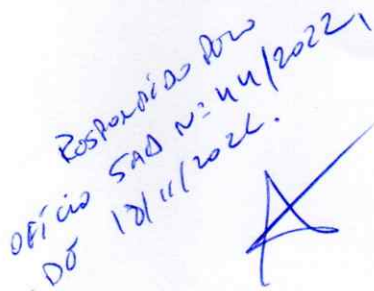 RESPONDIDO PELO
OFÍCIO SAD Nº 44/2022,
DE 18/11/2022.